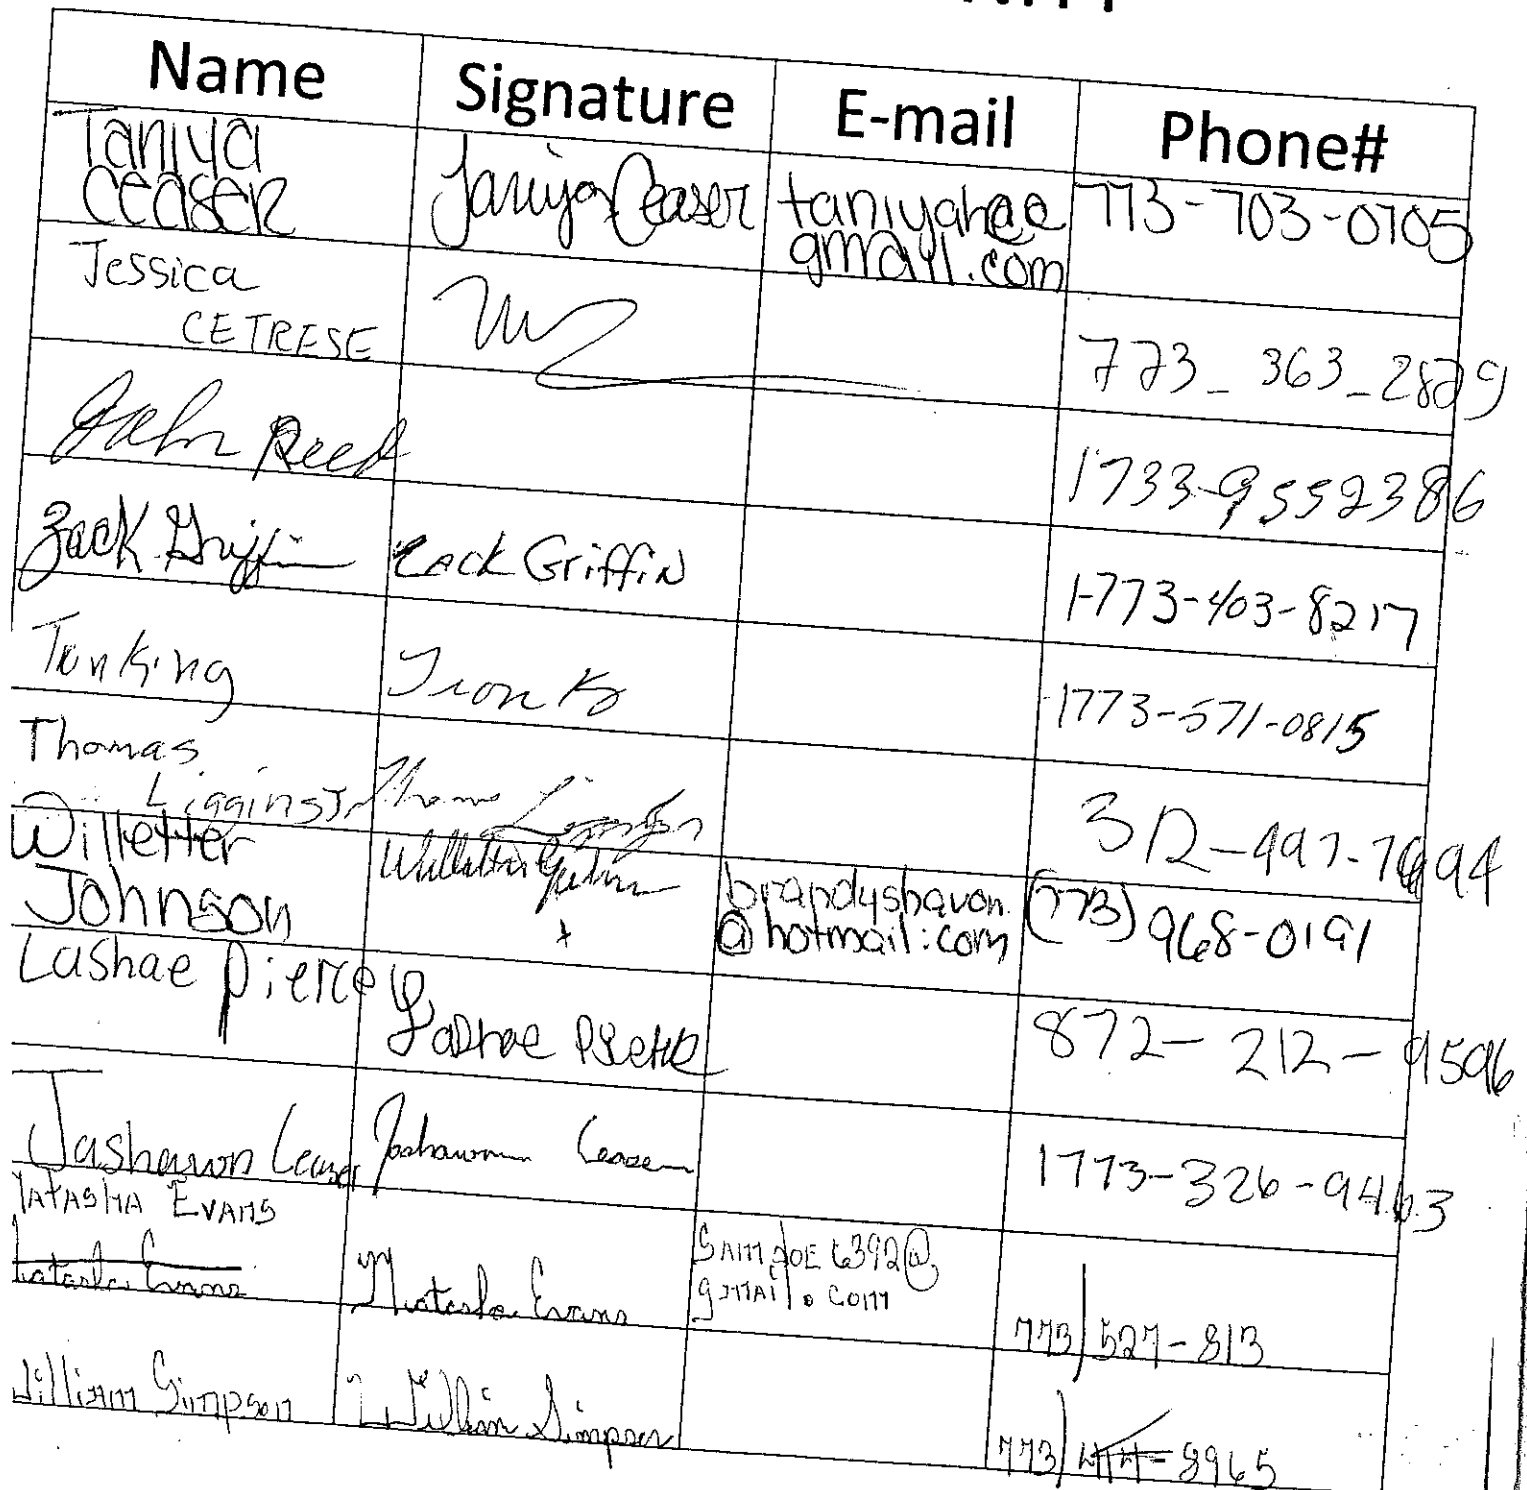 Name Signature E-mail Phone#
Taniya
Ceaser Taniya Ceaser taniyahcc@
gmail.com 773-703-0705
Jessica
CETRESE 773-363-2829
John Reed 1733-9552386
Zack Griffin Zack Griffin 1-773-403-8217
1773-571-0815
Thomas
Liggins Jr Thomas 312-497-
Willetter
Johnson brandyshavon
@hotmail.com (773) 968-0191
Lashae Pierce Lashae 872-212-9596
Jashawn Ceaser Jashawn Ceaser 1773-326-9463
Natasha Evans
Natasha Evans Natasha Evans
gmail.com 773/527-813
William Simpson William Simpson 773/ 8965